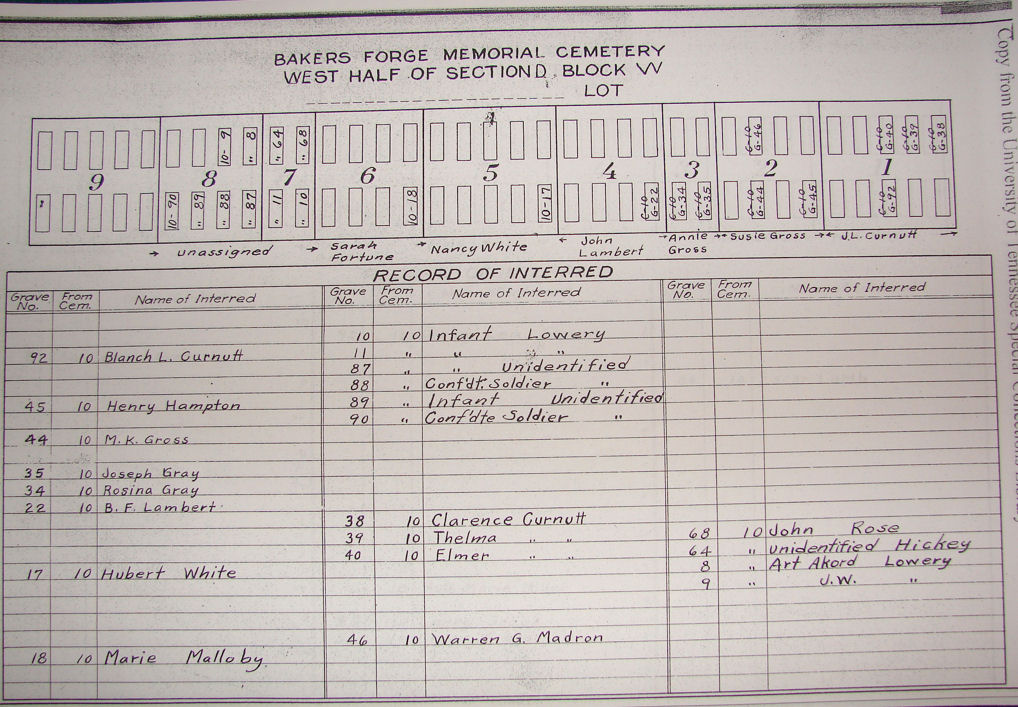 BAKERS FORGE MEMORIAL CEMETERY
WEST HALF OF SECTION D, BLOCK W
LOT
10-9 " 8 " 64 " 68 C-10 G-46 C-10 G-40 C-10 G-39 C-10 G-38
9 8 7 6 5 4 3 2 1
10-90 " 89 " 88 " 87 " 11 " 10 10-18 10-17 C-10 G-22 C-10 G-34 C-10 G-35 C-10 G-44 C-10 G-45 C-10 G-92
unassigned Sarah Fortune Nancy White John Lambert Annie Gross Susie Gross J.L. Curnutt
RECORD OF INTERRED
Grave No. From Cem. Name of Interred Grave No. From Cem. Name of Interred Grave No. From Cem. Name of Interred
10 10 Infant Lowery
11 " " "
92 10 Blanch L. Curnutt
87 " " Unidentified
88 " Conf'dt. Soldier "
45 10 Henry Hampton 89 " Infant Unidentified
90 " Conf'dte Soldier "
44 10 M.K. Gross
35 10 Joseph Gray
34 10 Rosina Gray
22 10 B.F. Lambert
38 10 Clarence Curnutt 68 10 John Rose
39 10 Thelma " " 64 " Unidentified Hickey
40 10 Elmer " " 8 " Art Akord Lowery
17 10 Hubert White 9 " J.W. "
46 10 Warren G. Madron
18 10 Marie Malloby
Copy from the University of Tennessee Special Collections Library